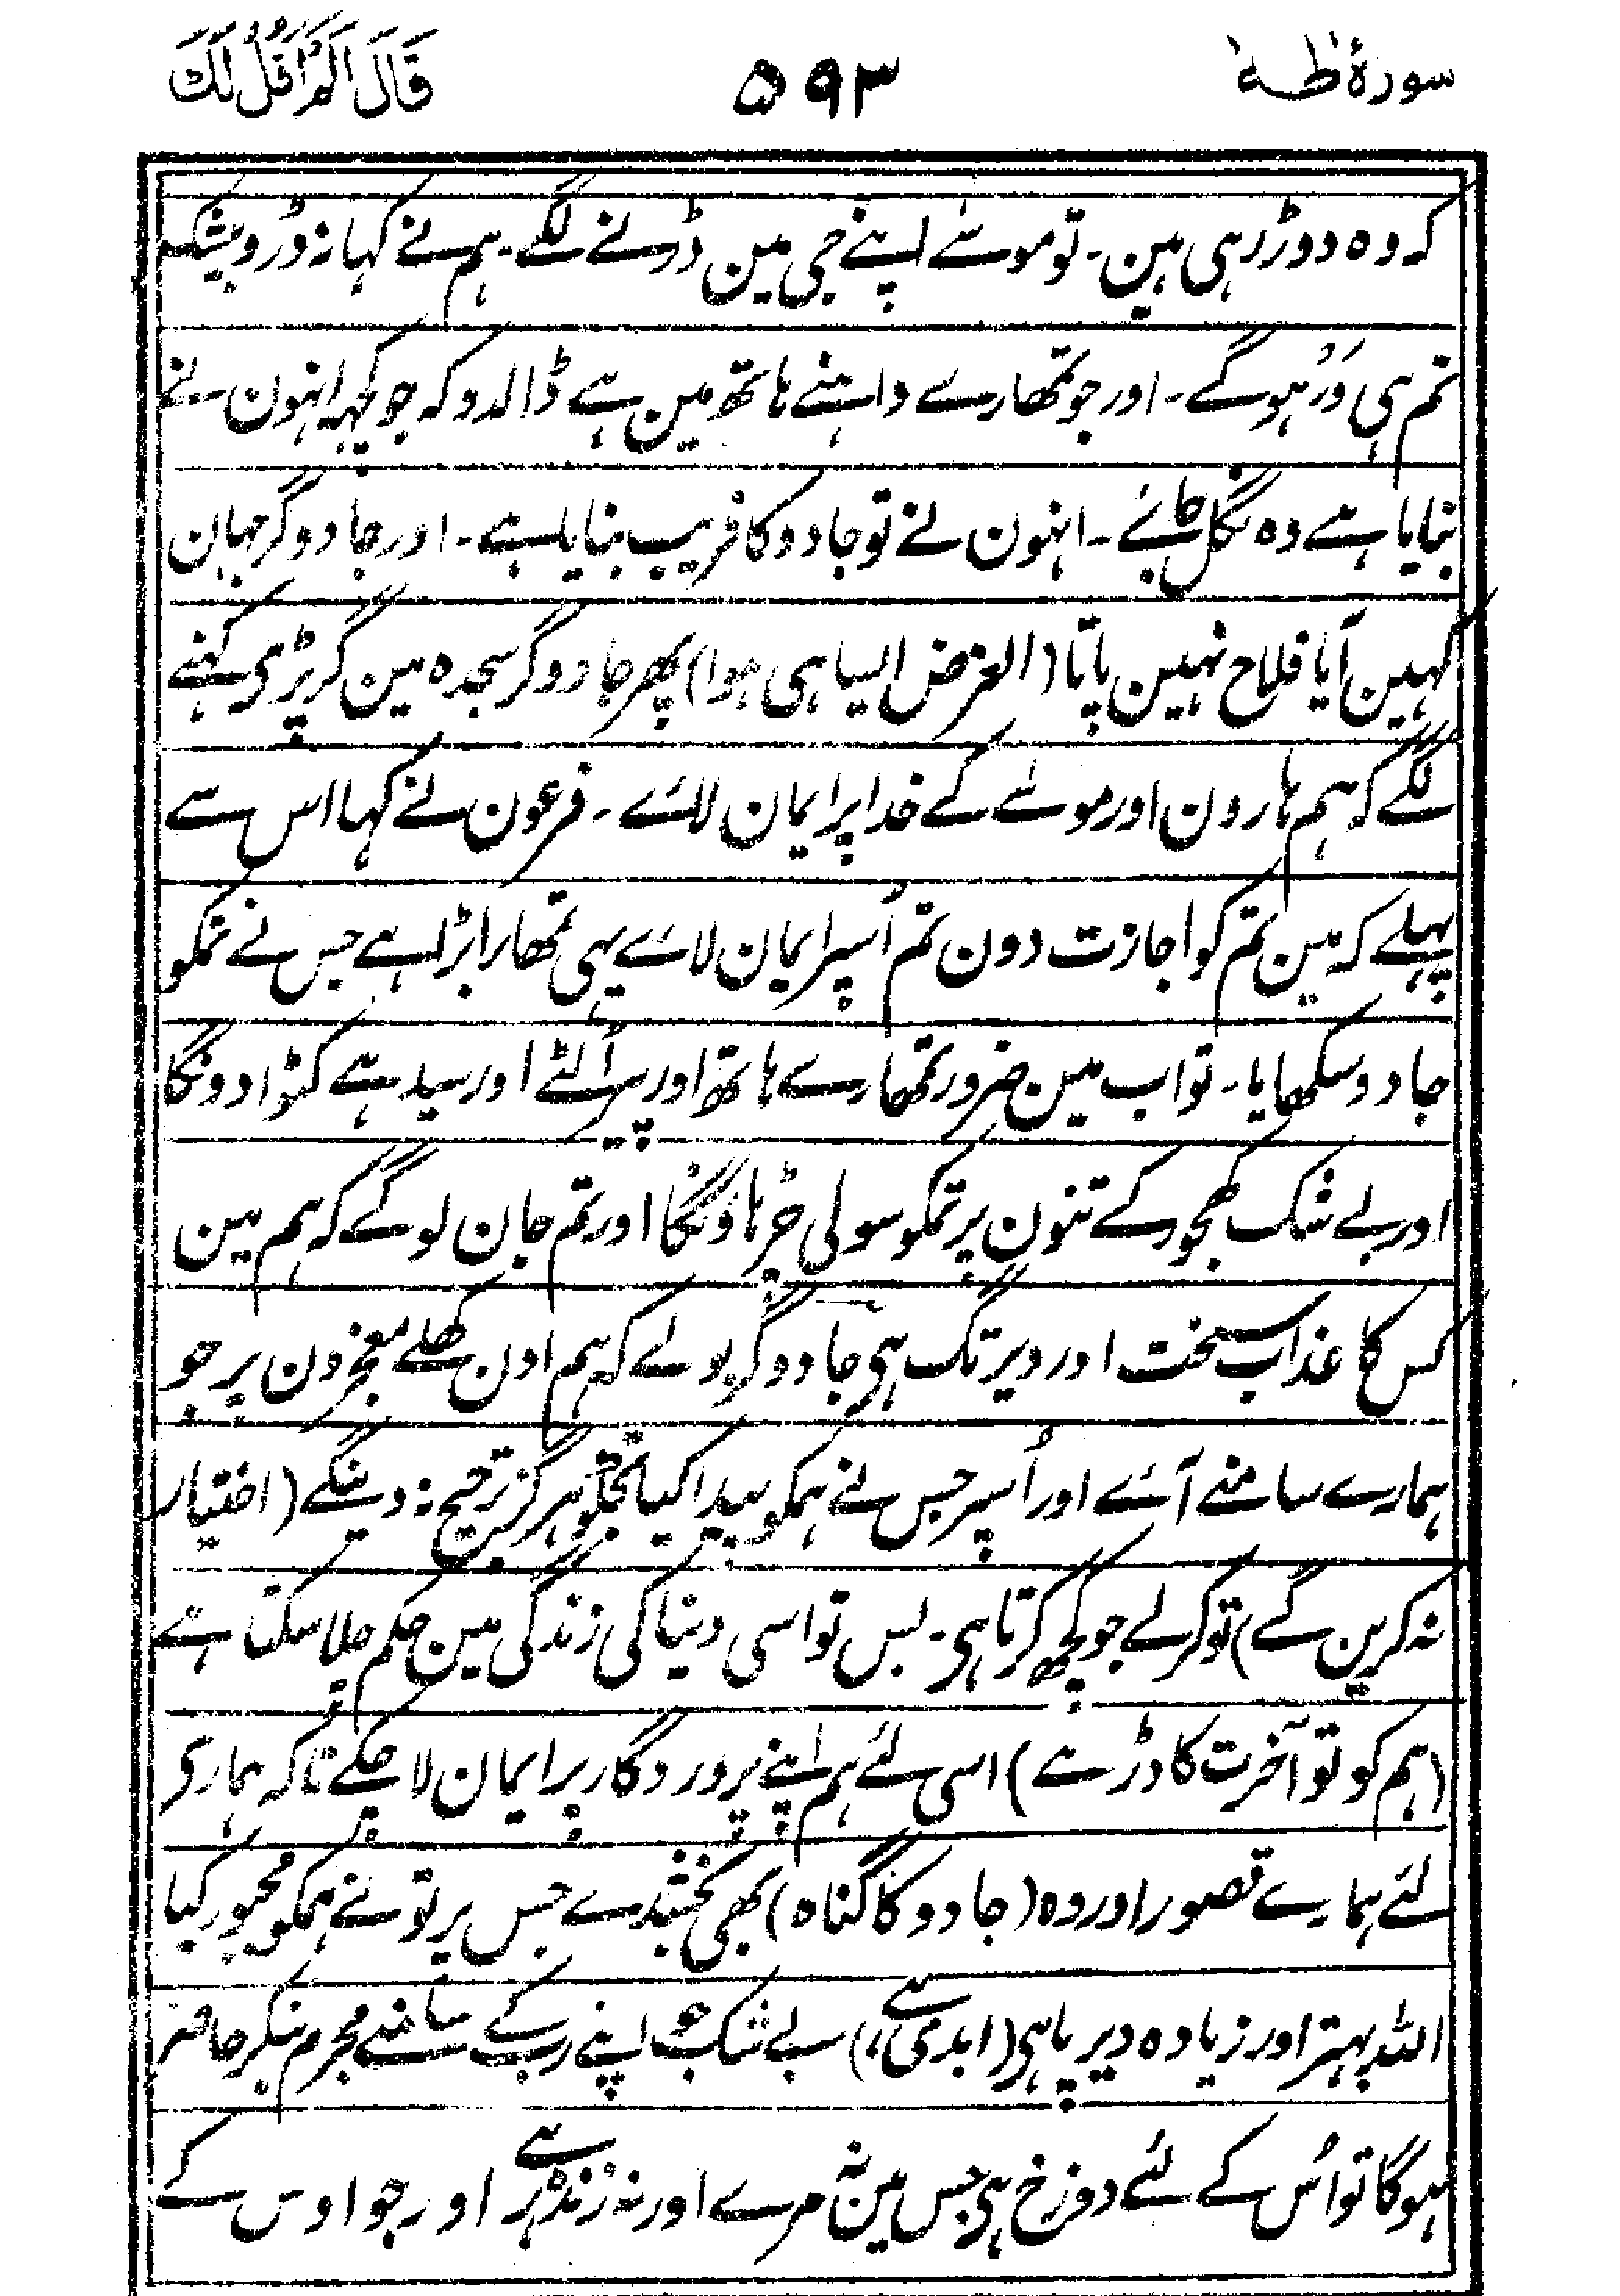 سورۂ طٰہٰ ۵۹۳ قَالَ اَلَمْ اَقُلْ لَكَ
کہ وہ دوڑ رہی ہین۔ تو موسےٰ اپنے جی مین ڈرنے لگے۔ ہم نے کہا نہ ڈرو بیشک
تم ہی وَرُ ہوگے۔ اور جو تمھارے داہنے ہاتھ مین ہے ڈالدو کہ جو کچہہ انہون نے
بنایا ہے وہ نگل جائے۔ انہون نے تو جادو کا فریب بنایا ہے۔ اور جادوگر جہان
کہین آیا فلاح نہین پاتا (الغرض ایسا ہی ہوا) پھر جادوگر سجدہ مین گر پڑی کہنے
لگے کہ ہم ہارون اور موسےٰ کے خدا پر ایمان لائے۔ فرعون نے کہا اس سے
پہلے کہ مین تم کو اجازت دون تم اُسپر ایمان لائے یہی تمھارا بڑا ہے جس نے تمکو
جادو سکھایا۔ تو اب مین ضرور تمھارے ہاتھ اور پیر اُلٹے اور سیدہے کٹوا دونگا
اور بے شک کھجور کے تنون پر تمکو سولی چڑہاؤنگا اور تم جان لوگے کہ ہم مین
کس کا عذاب سخت اور دیر تک ہی جادوگر بولے کہ ہم اون کھلے معجزون پر جو
ہمارے سامنے آئے اور اُسپر جس نے ہمکو پیدا کیا تجھکو ہرگز ترجیح نہ دینگے (اختیار
نہ کرین گے) تو کر لے جو کچھ کرتا ہی۔ بس تو اسی دنیا کی زندگی مین حکم چلا سکتا ہے
(ہم کو تو آخرت کا ڈر ہے) اسی لئے ہم اپنے پروردگار پر ایمان لا چکے تاکہ ہماری
لئے ہمارے قصور اور وہ (جادو کا گناہ) بھی بخشدے جس پر تو نے ہمکو مجبور کیا
اللہ بہتر اور زیادہ دیرپا ہی (ابدی ہے) بے شک جو اپنے رب کے سامنے مجرم بنکر حاضر
ہوگا تو اُس کے لئے دوزخ ہی جس مین نہ مرے اور نہ زندہ رہے اور جو اوس کے